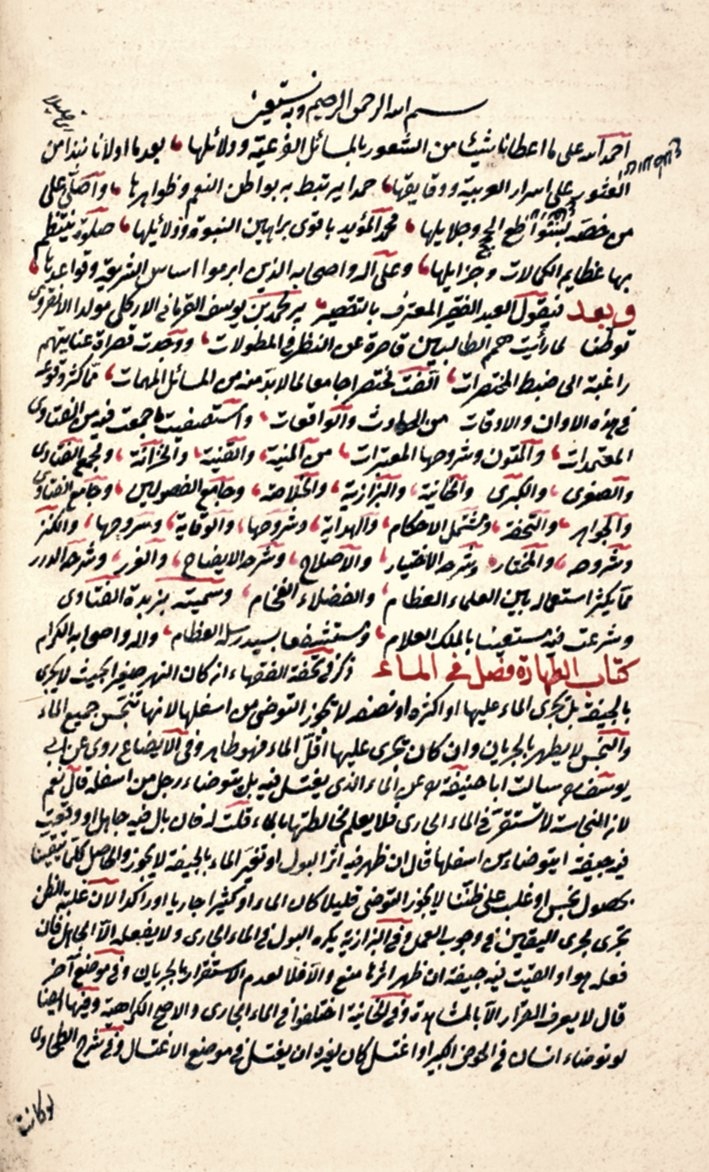 بسم الله الرحمن الرحيم وبه نستعين
احمد الله على ما اعطانا شيئا من الشعور بالمسائل الفرعية ودلائلها بعد ما اولانا نبذا من
العثور على اسرار العربية ودقايقها حمدا يرتبط به بواطن النعم وظواهرها واصلى على
من خصه الحجج وجلايلها محمد المؤيد باقوى براهين النبوة ودلايلها صلوة ينتظم
بها عظايم الكمالات وجزايلها وعلى آله واصحابه الذين ابرموا اساس الشريعة وقواعدها
وبعد فيقول العبد الفقير المعترف بالتقصير بير محمد بن يوسف القرمانى الاركلى مولدا الانقروى
توطنا لما رأيت همم الطالبين قاصرة عن النظر فى المطولات ووجدت قصارة عنايتهم
راغبة الى ضبط المختصرات الفت مختصرا جامعا لما لا بد منه من المسائل المهمات مما كثر وقوعه
فى هذه الاوان والاوقات من الحوادث والواقعات واستصفيت ما جمعت فيه من الفتاوى
المعتمدات والمتون وشروحها المعتبرات من المنية والقنية والخزانة ومجمع الفتاوى
والصغرى والكبرى والخانية والبزازية والخلاصة وجامع الفصولين وجامع الفتاوى
والجواهر والتحفة ومشتمل الاحكام والهداية وشروحها والوقاية وشروحها والكنز
وشروحه والمختار وشرحه الاختيار والاصلاح وشرحه الايضاح والغرر وشرحه الدرر
مما يكثر استعماله بين العلماء العظام والفضلاء الفخام وسميته بزبدة الفتاوى
وشرعت فيه مستعينا بالملك العلام ومستشفعا بسيد رسله العظام واله واصحابه الكرام
كتاب الطهارة فصل فى الماء ذكر فى تحفة الفقهاء ان كان النهر صغيرا بحيث لا يجرى
بالجيفة بل يجرى الماء عليها او اكثره او نصفه لا يجوز التوضى من اسفلها لانها تنجس جميع الماء
والنجس لا يطهر بالجريان وان كان يجرى عليها اقل الماء فهو طاهر وفى الايضاح روى عن ابى
يوسف سالت ابا حنيفة عن الماء الذى يغتسل فيه بل يتوضاء رجل من اسفله قال نعم
لان النجاسة لا تستقر فى الماء الجارى قلت له فان بال فيه جاهل او وقعت
فيه جيفة ايتوضاء من اسفلها قال ان ظهر فيه اثر البول او تغير الماء بالجيفة لا يجوز والحاصل كلما تيقنا
بحصول نجس او غلب على ظننا لا يجوز التوضى قليلا كان الماء او كثيرا جاريا او راكدا لان غلبة الظن
تجرى مجرى اليقين فى وجوب العمل وفى البزازية يكره البول فى الماء الجارى ولا يفعله الا الجاهل فان
فعله هو او القيت فيه جيفة ان ظهر اثرها منع والا فلا لعدم الاستقرار بالجريان وفى موضع آخر
قال لا يعرف القرار الا بالمشاهدة وفى الخانية اختلفوا فى الماء الجارى والاصح الكراهة وفيها ايضا
لو توضاء انسان فى الحوض الكبير او اغتسل كان يغره ان يغتسل فى موضع الاغتسال وفى شرح الطحاوى
لو كانت